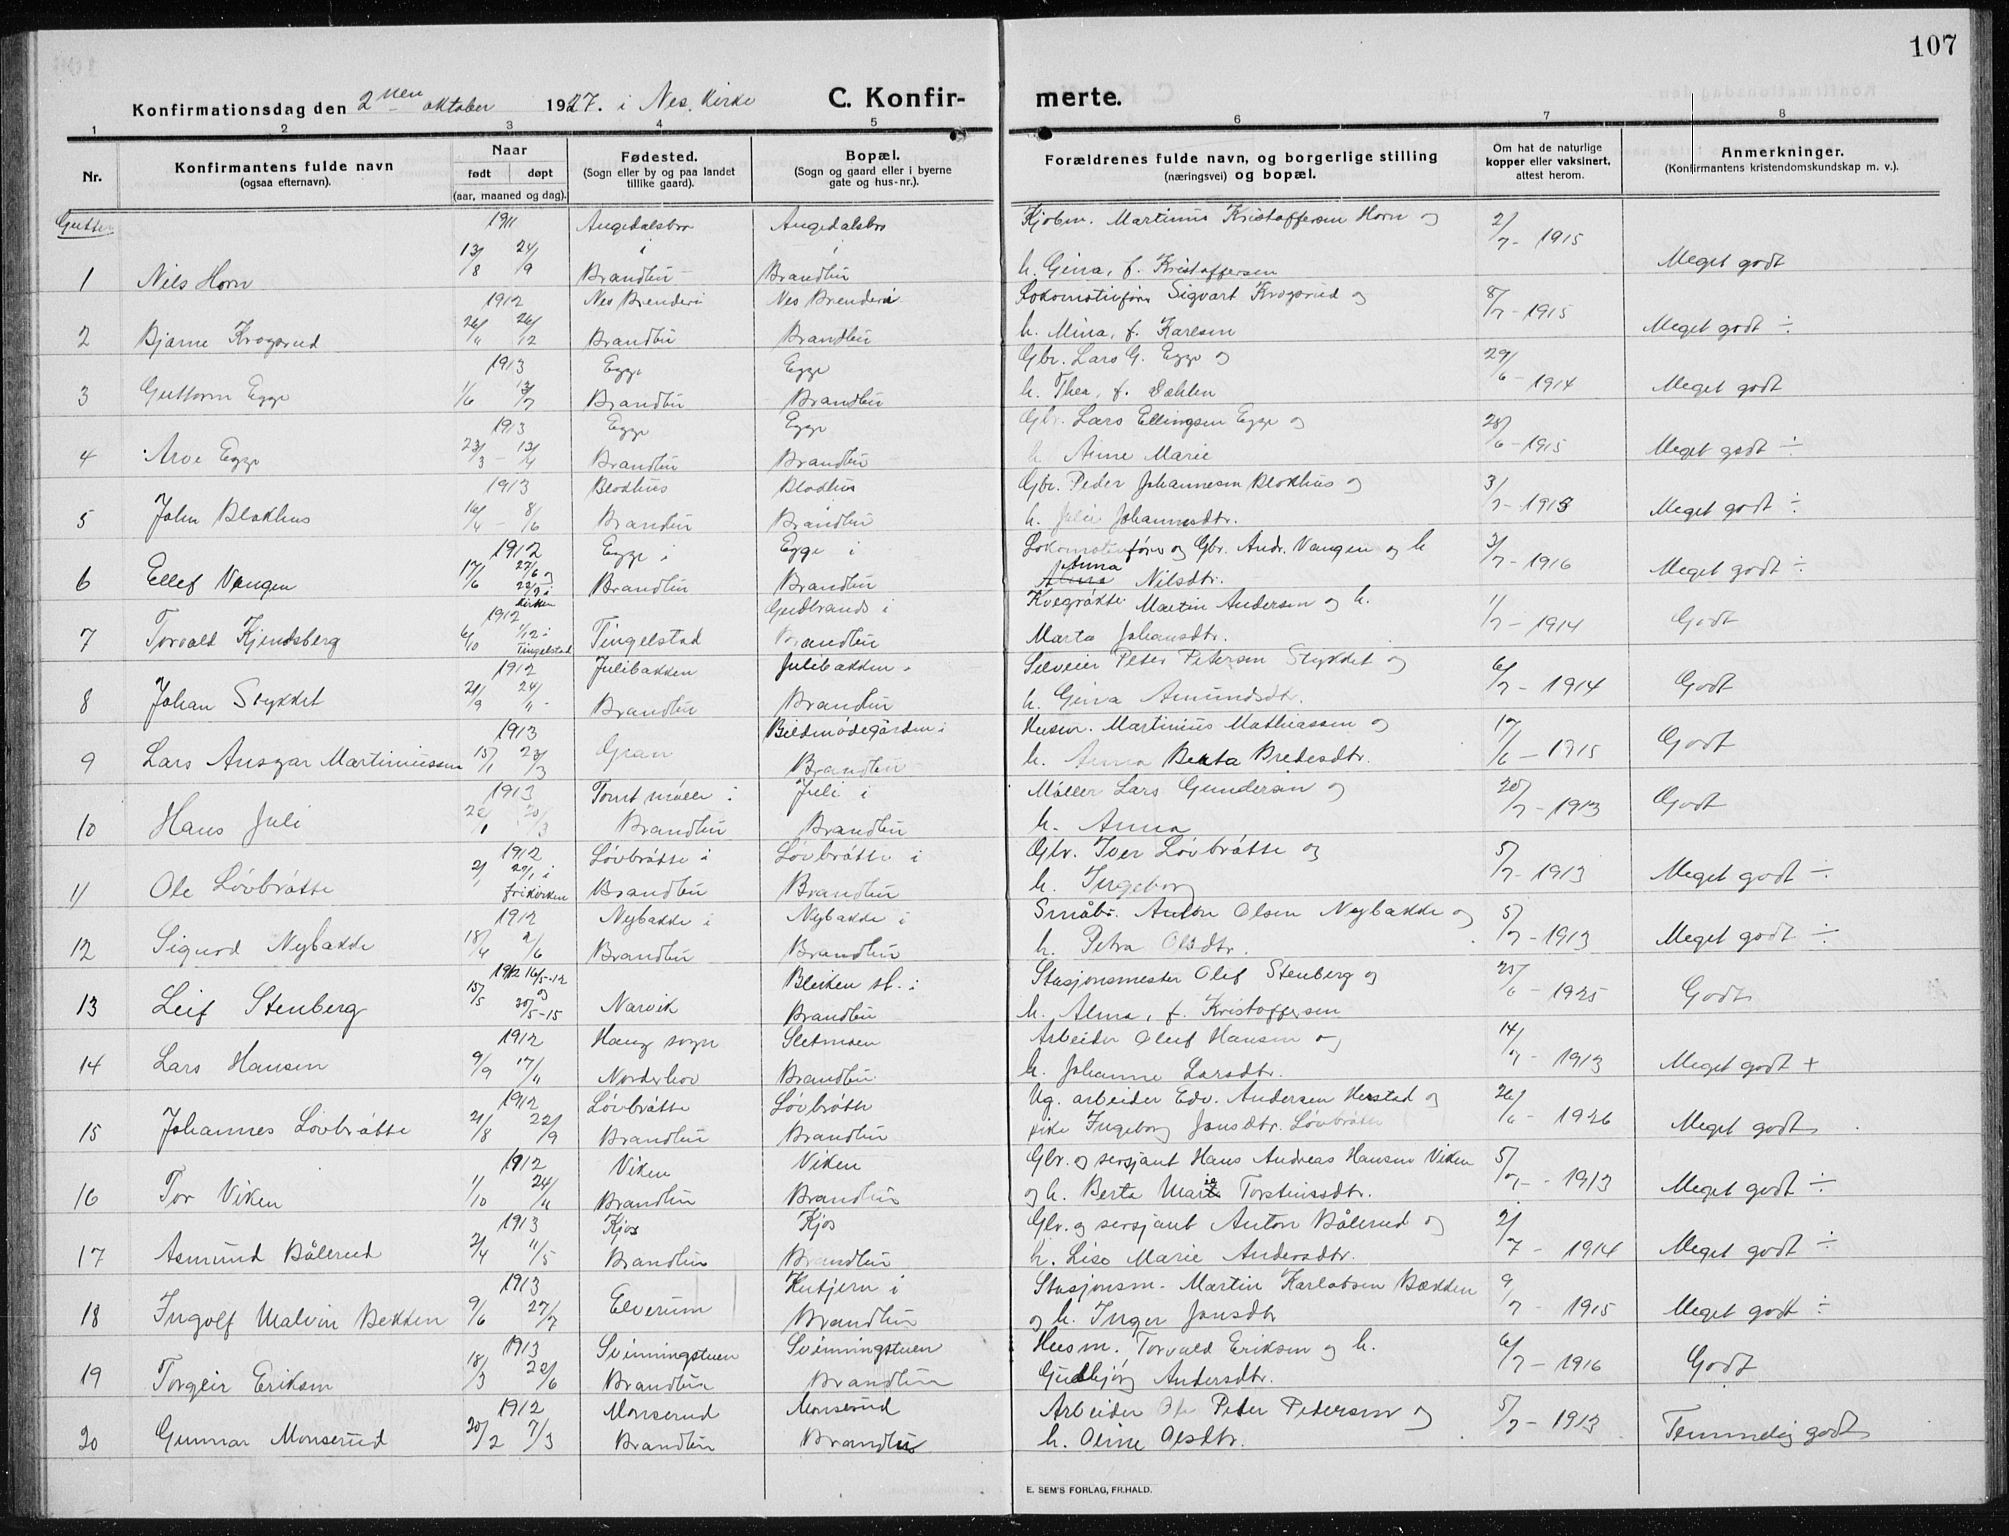 107
Konfirmationsdag den 2nen oktober 1927. i Nes kirke C. Konfir- merte.
1 2 3 4 5 6 7 8
Nr. Konfirmantens fulde navn (ogsaa efternavn). Naar født døpt (aar, maaned og dag). Fødested. (Sogn eller by og paa landet tillike gaard). Bopæl. (Sogn og gaard eller i byerne gate og hus-nr.). Forældrenes fulde navn, og borgerlige stilling (næringsvei) og bopæl. Om hat de naturlige kopper eller vaksinert, attest herom. Anmerkninger. (Konfirmantens kristendomskundskap m. v.).
Gutter 1911 Augedalsbro Augedalsbro Kjøbm. Martinius Kristoffersen Horn og 2/7 - 1915
1 Nils Horn 13/8 24/9 i Brandbu i Brandbu h. Gina, f. Kristoffersen Meget godt
1912 Nes Brenderi Nes Brenderi Lokomotivfører Sigvart Krogsrud og 8/7 - 1915
2 Bjarne Krogsrud 26/11 26/12 Brandbu Brandbu h. Mina, f. Karlsen Meget godt ÷
1913 Egge Egge Gbr. Lars G. Egge og 29/6 - 1914
3 Guttorm Egge 1/6 13/7 Brandbu Brandbu h. Thea, f. Dæhlen Meget godt
1913 Egge Egge Gbr. Lars Ellingsen Egge og 28/6 - 1915
4 Arve Egge 23/3 - 13/4 Brandbu Brandbu h. Anne Marie Meget godt ÷
1913 Blokhus Blokhus Gbr. Peder Johannesen Blokhus og 3/7 - 1915
5 John Blokhus 16/4 - 8/6 Brandbu Brandbu h. Julie Johannesdtr. Meget godt ÷
1912 Egge i Egge i Lokomotivfører og Gbr. Andr. Vangen og h. 3/7 - 1916
6 Ellef Vangen 17/6 27/6 og 22/9 i kirken Brandbu Brandbu Anna Nilsdtr. Meget godt ÷
1912 Gudbrands i Kvegrøkter Martin Andersen og h. 11/7 - 1914
7 Torvald Kjendsberg 6/10 1/12 i Tingelstad Tingelstad Brandbu Marta Johansdtr. Godt
1912 Julibakken Julibakken Selveier Peter Petersen Stykket og 6/7 - 1914
8 Johan Stykket 21/9 24/11 Brandbu Brandbu h. Gina Amundsdtr. Godt
1913 Bildenødegården i Husm. Martinius Mathiassen og 17/6 - 1915
9 Lars Ansgar Martiniussen 15/1 23/3 Gran Brandbu h. Anna Berta Bredesdtr. Godt
1913 Tomt mølle i Juli i Møller Lars Gundersen og 20/7 - 1913
10 Hans Juli 26/1 20/3 Brandbu Brandbu h. Anna Godt
1912 Løvbråtte i Løvbråtte i Gbr. Iver Løvbråtte og 5/7 - 1913
11 Ole Løvbråtte 2/1 29/1 i frikirken Brandbu Brandbu h. Ingeborg Meget godt ÷
1912 Nybakke i Nybakke i Småbr. Anton Olsen Nybakke og 5/7 - 1913
12 Sigurd Nybakke 18/4 2/6 Brandbu Brandbu h. Petra Olsdtr. Meget godt ÷
1912 16/5-12 Bleiken st. i Stasjonsmester Olef Stenberg og 25/6 - 1925
13 Leif Stenberg 15/5 og 30/5-15 Narvik Brandbu h. Alma, f. Kristoffersen Godt
1912 Haug sogn Sletmoen Arbeider Oluf Hansen og 14/7 - 1913
14 Lars Hansen 9/9 17/11 Norderhov Brandbu h. Johanne Larsdtr. Meget godt +
1912 Løvbråtte Løvbråtte Ug. arbeider Edv. Andersen Herstad og 26/6 - 1926
15 Johannes Løvbråtte 21/8 22/9 Brandbu Brandbu pike Ingeborg Jensdtr. Løvbråtte Meget godt
1912 Viken Viken Gbr. og sersjant Hans Andreas Hansen Viken 5/7 - 1913
16 Tor Viken 1/10 24/11 Brandbu Brandbu og h. Berta Marie Torsteinsdtr. Meget godt ÷
1913 Kjos Kjos Gbr. og sersjant Anton Bålerud og 2/7 - 1914
17 Asmund Bålerud 2/4 11/5 Brandbu Brandbu h. Lise Marie Andersdtr. Meget godt ÷
1913 Hutjern i Stasjonsm. Martin Karlotsen Bækken 9/7 - 1915
18 Ingolf Malvin Bekken 9/6 27/7 Elverum Brandbu og h. Inger Jensdtr Meget godt ÷
1913 Svinningstuen Svinningstuen Husm. Torvald Eriksen og h. 6/7 - 1916
19 Torgeir Eriksen 18/3 22/6 Brandbu Brandbu Gudbjørg Andersdtr. Godt
1912 Monserud Monserud Arbeider Peter Pedersen og 5/7 - 1913
20 Gunnar Monserud 20/2 7/3 Brandbu Brandbu h. Oline Olsdtr. Temmelig godt
E. SEM'S FORLAG, FR.HALD.